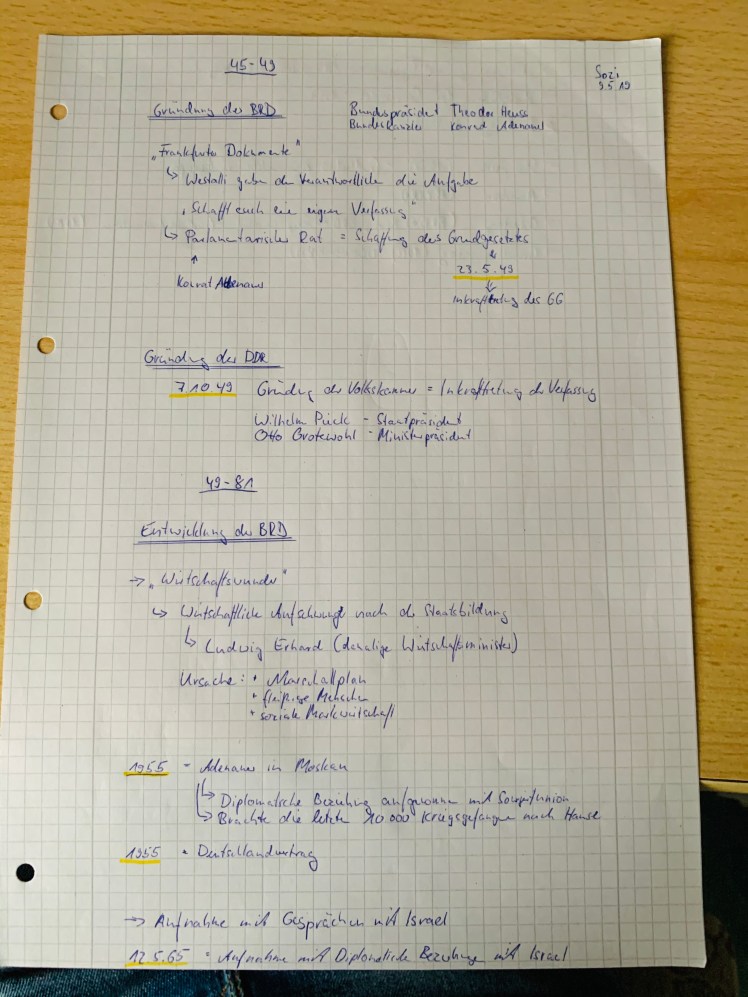 45-49
Sozi
9.5.19
Gründung der BRD
Bundespräsident Theodor Heuss
Bundeskanzler Konrad Adenauer
„Frankfurter Dokumente"
↳ Westalli gaben den Verantwortliche die Aufgabe
„Schafft euch eine eigene Verfassung"
↳ Parlamentarischer Rat = Schaffung des Grundgesetztes
↑
↓
23.5.49
Konrat Adenauer
↓
Inkrafttretung des GG
Gründung der DDR
7 10 49 Gründung der Volkskammer = Inkrafttretung der Verfassung
Wilhelm Pieck - Staatpräsident
Otto Grotewohl - Ministerpräsident
49-81
Entwicklung der BRD
→ „Wirtschaftswunder"
↳ Wirtschaftliche Aufschwung nach der Staatsbildung
↳ Ludwig Erhard (damalige Wirtschaftsminister)
Ursache: • Marschallplan
• fleißige Menschen
• soziale Markwirtschaft
1955 - Adenauer in Moskau
↳ Diplomatische Beziehung aufgenommen mit Sowjetunion
↳ Brachte die letzte 10 000 Kriegsgefangene nach Hause
1955 • Deutschlandvertrag
→ Aufnahme mit Gesprächen mit Israel
12.5.65 = Aufnahme mit Diplomatische Beziehung mit Israel